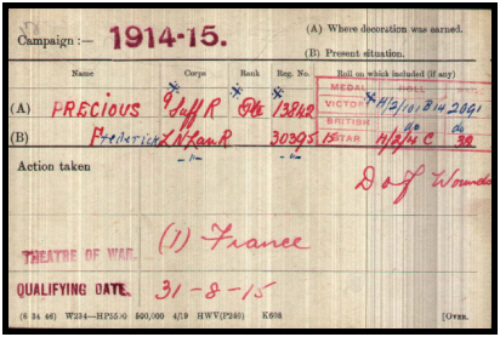 Campaign :— 1914-15.
(A) Where decoration was earned.
(B) Present situation.
Name Corps Rank Reg. No. Roll on which included (if any)
MEDAL ROLL
(A) PRECIOUS 9 Suff R Pte 13842 VICTORY H/2/101 B14 2091
BRITISH do do
(B) Frederick L N Lan R 30395 15 STAR H/2/4 C 38
-"- -"-
Action taken
D of Wounds
THEATRE OF WAR. (1) France
QUALIFYING DATE. 31-8-15
(6 34 46) W234—HP5590 500,000 4/19 HWV(P240) K608 [OVER.